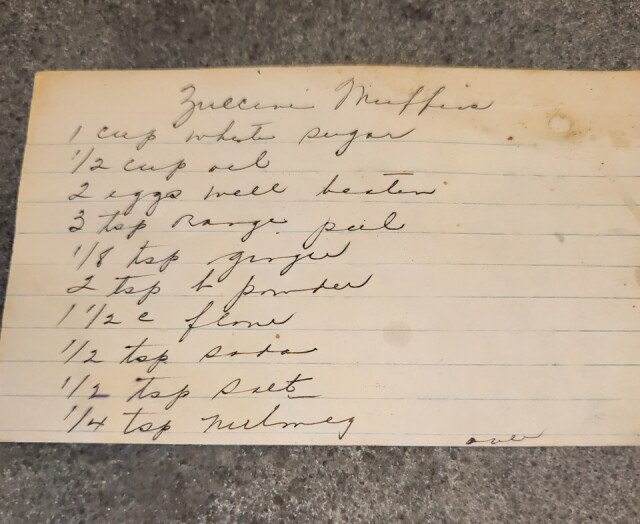 Zuccini Muffins
1 cup white sugar
1/2 cup oil
2 eggs well beaten
3 tsp orange peel
1/8 tsp ginger
2 tsp b powder
1 1/2 c flour
1/2 tsp soda
1/2 tsp salt
1/4 tsp nutmeg
over